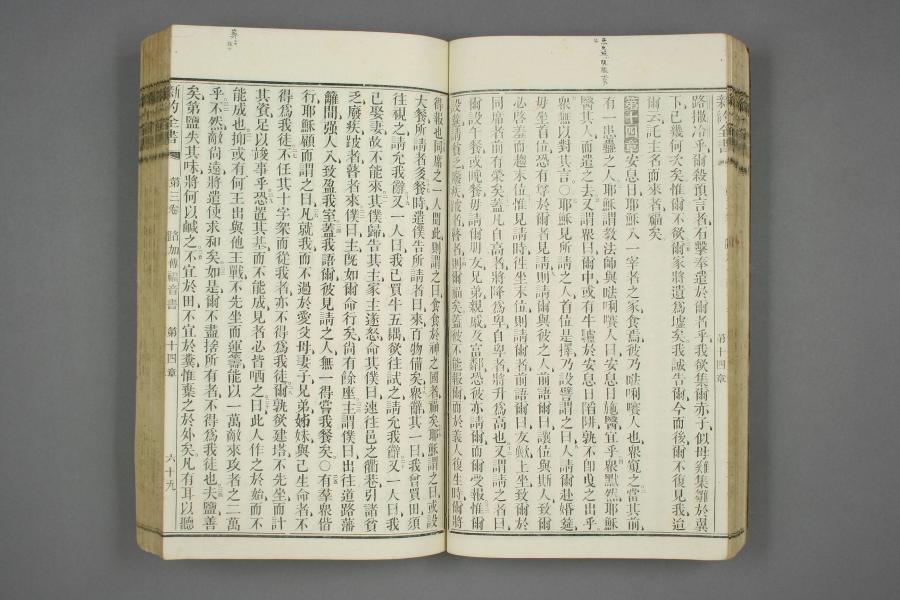 路撒冷乎爾殺預言者有擊奉遣於爾者乎我欲集爾赤子似母雞集雛於翼
下已幾何次矣惟爾不欲爾家將遺爲墟矣我誠告爾今而後爾不復見我迨
爾云託主名而來者福矣
第十四章安息日耶穌入一宰者之家食焉彼乃𠵽唎㘔人也衆窺之當其前
有一患蠱之人耶穌謂教法師與𠵽唎㘔人曰安息日施醫宜乎衆默然耶穌
醫其人而遣之去又謂衆曰爾中或有牛驢於安息日陷阱孰不卽曳之出乎
衆無以對其言〇耶穌見所請之人首位是擇乃設譬謂之曰人請爾赴婚筵
毋坐首位恐有尊於爾者見請則請爾與彼之人前語爾曰讓位與斯人致爾
必啓羞而趨末位惟見請時往坐末位則請爾者前語爾曰友歟上坐致爾於
同席者前有榮矣蓋凡自高者將降爲卑自卑者將升爲高也又謂請之者曰
爾設午餐或晚餐毋請爾朋友兄弟親戚及富鄰恐彼亦請爾而爾受報惟爾
設筵請貧乏廢疾跛者瞽者則爾福矣蓋彼不能報爾而於義人復生時爾將
得報也同席之一人聞此則謂之曰食食於神之國者福矣耶穌謂之曰或設
大餐所請者多餐時遣僕告所請者曰來百物備矣衆辭其一曰我曾買田須
往視之請允我辭又一人曰我已買牛五耦欲往試之請允我辭又一人曰我
已娶妻故不能來其僕歸告其主家主遂怒命其僕曰速往邑之衢巷引諸貧
乏廢疾跛者瞽者來僕曰主旣如爾命行矣尚有餘座主謂僕曰出往道路藩
籬間強人入致盈我室蓋我語爾彼見請之人無一得嘗我餐矣〇有羣衆偕
行耶穌顧而謂之曰凡就我而不過於愛父母妻子兄弟姊妹與己生命者不
得爲我徒不任其十字架而從我者亦不得爲我徒爾孰欲建塔不先坐而計
其資足以竣事乎恐置其基而不能成見者必皆哂之曰此人作之於始而不
能成也抑或有何王出與他王戰不先坐而運籌能以一萬敵來攻者之二萬
乎不然敵尚遠將遣使求和矣如是爾不盡捨所有者不得爲我徒也夫鹽善
矣第鹽失其味將何以鹹之不宜於田不宜於糞惟棄之於外矣凡有耳以聽
新約全書 第三卷 路加傳福音書 第十四章 六十九